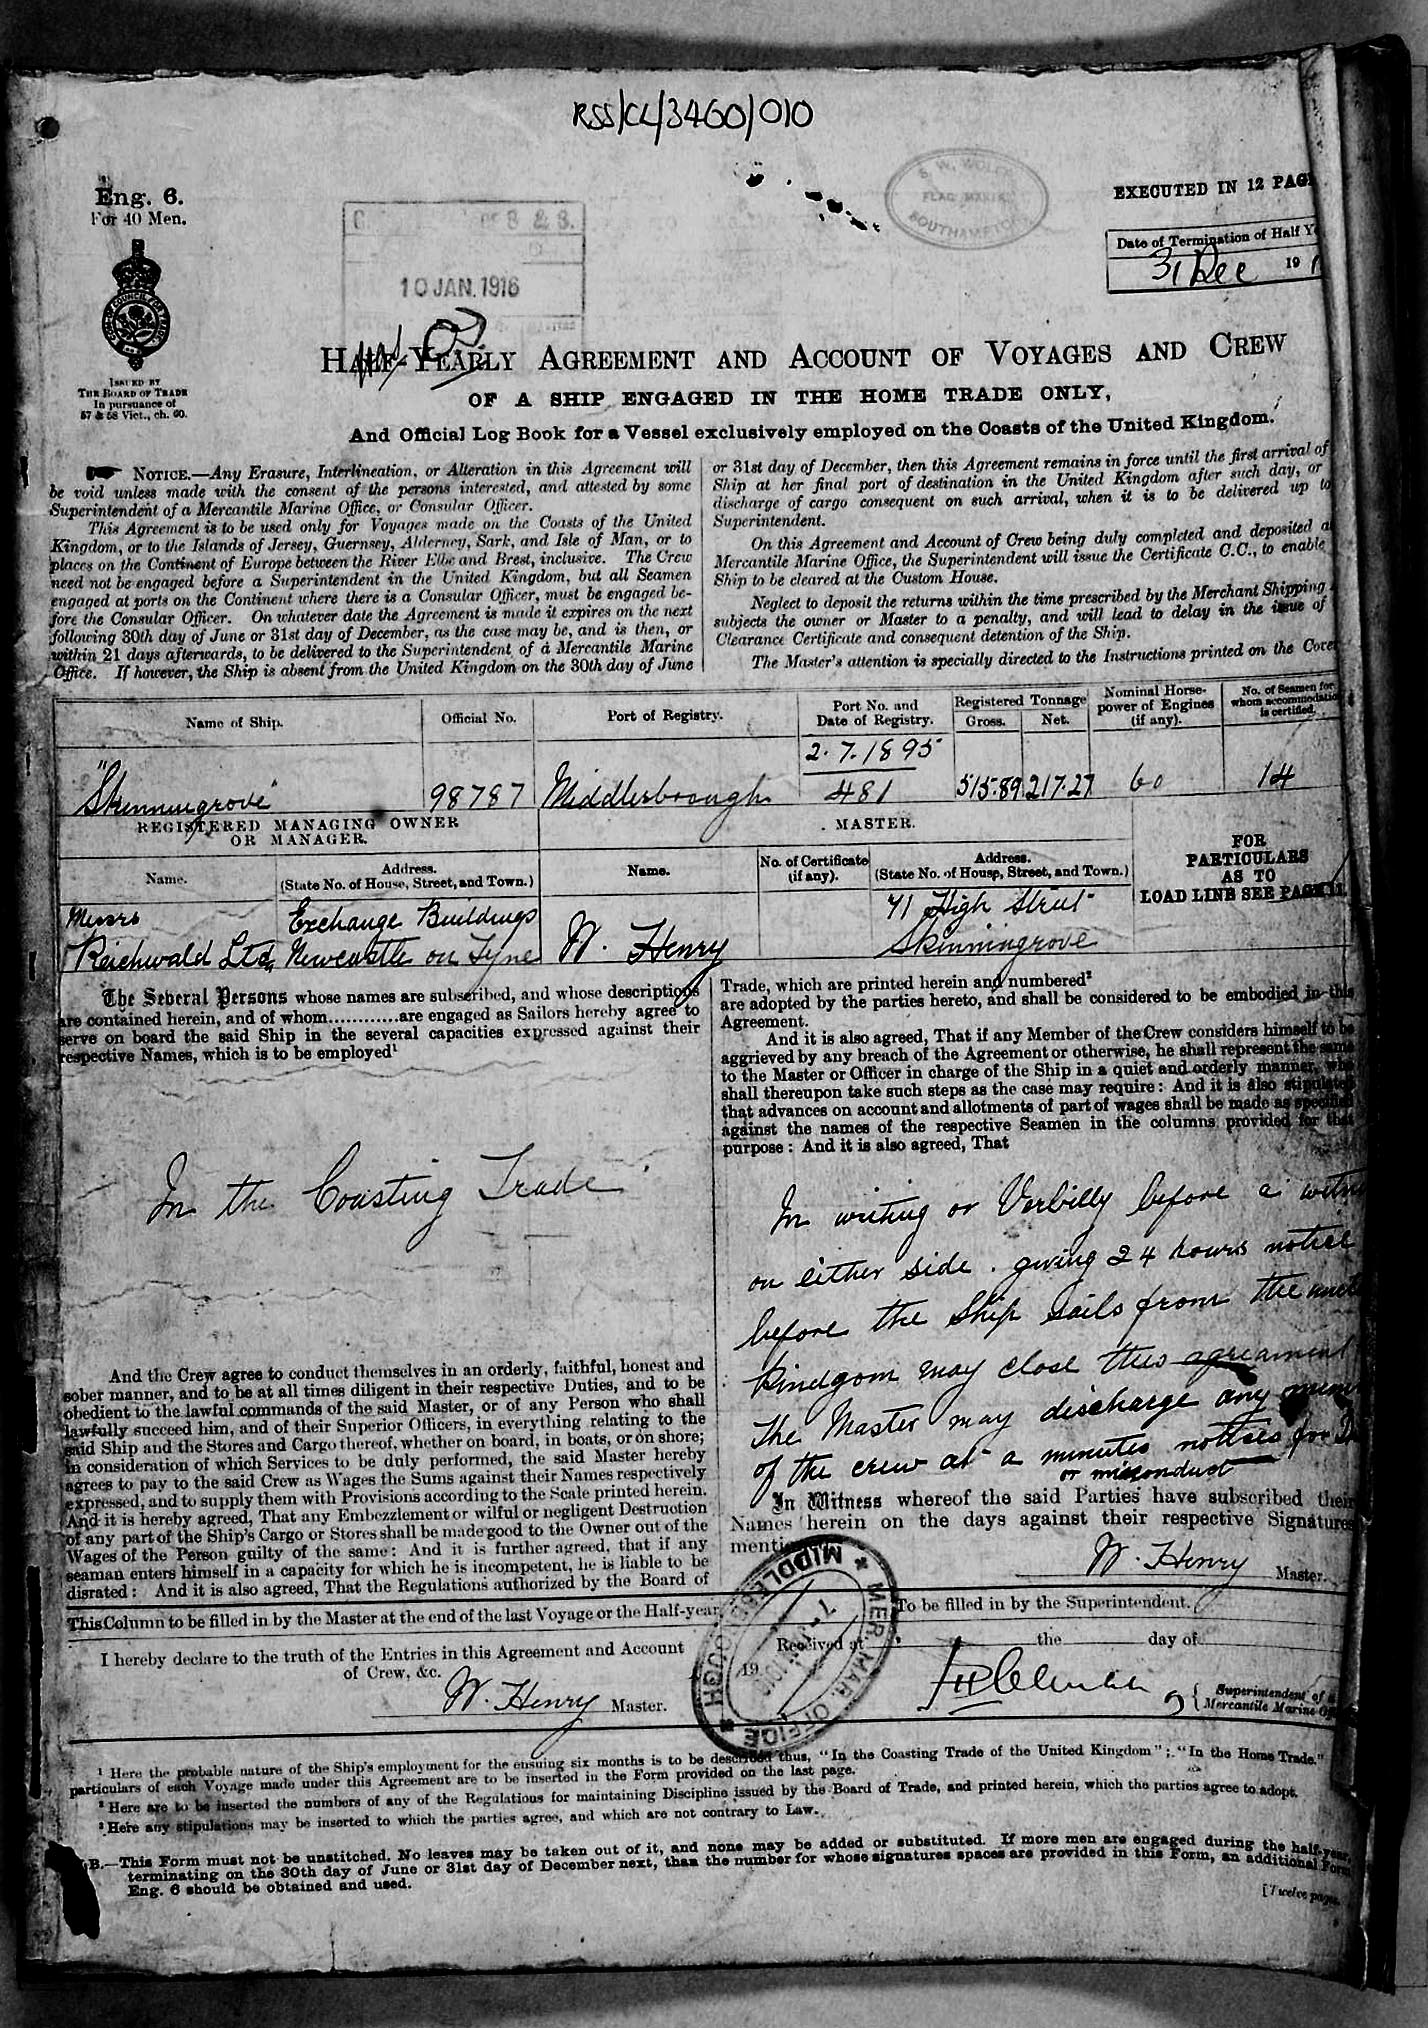 RSS/CL/3460/010
Eng. 6.
For 40 Men.
S. W. WOLFE
FLAG MAKER
SOUTHAMPTON
EXECUTED IN 12 PAG
Date of Termination of Half Y
31 Dec 191
10 JAN. 1916
ISSUED BY
THE BOARD OF TRADE
In pursuance of
57 & 58 Vict., ch. 60.
HALF-YEARLY AGREEMENT AND ACCOUNT OF VOYAGES AND CREW
OF A SHIP ENGAGED IN THE HOME TRADE ONLY,
And Official Log Book for a Vessel exclusively employed on the Coasts of the United Kingdom.
NOTICE.—Any Erasure, Interlineation, or Alteration in this Agreement will
be void unless made with the consent of the persons interested, and attested by some
Superintendent of a Mercantile Marine Office, or Consular Officer.
This Agreement is to be used only for Voyages made on the Coasts of the United
Kingdom, or to the Islands of Jersey, Guernsey, Alderney, Sark, and Isle of Man, or to
places on the Continent of Europe between the River Elbe and Brest, inclusive. The Crew
need not be engaged before a Superintendent in the United Kingdom, but all Seamen
engaged at ports on the Continent where there is a Consular Officer, must be engaged be-
fore the Consular Officer. On whatever date the Agreement is made it expires on the next
following 30th day of June or 31st day of December, as the case may be, and is then, or
within 21 days afterwards, to be delivered to the Superintendent of a Mercantile Marine
Office. If however, the Ship is absent from the United Kingdom on the 30th day of June
or 31st day of December, then this Agreement remains in force until the first arrival of
Ship at her final port of destination in the United Kingdom after such day, or
discharge of cargo consequent on such arrival, when it is to be delivered up to
Superintendent.
On this Agreement and Account of Crew being duly completed and deposited a
Mercantile Marine Office, the Superintendent will issue the Certificate C.C., to enable
Ship to be cleared at the Custom House.
Neglect to deposit the returns within the time prescribed by the Merchant Shipping
subjects the owner or Master to a penalty, and will lead to delay in the issue of
Clearance Certificate and consequent detention of the Ship.
The Master's attention is specially directed to the Instructions printed on the Cover
Name of Ship.
Official No.
Port of Registry.
Port No. and
Date of Registry.
Registered Tonnage
Gross. Net.
Nominal Horse-
power of Engines
(if any).
No. of Seamen for
whom accommodation
is certified.
2.7.1895
"Skinningrove" 98787 Middlesbrough 481 515.89 217.27 60 14
REGISTERED MANAGING OWNER
OR MANAGER.
MASTER.
Name.
Address.
(State No. of House, Street, and Town.)
Name.
No. of Certificate
(if any).
Address.
(State No. of House, Street, and Town.)
FOR
PARTICULARS
AS TO
LOAD LINE SEE PAGE 11.
Messrs Exchange Buildings 71 High Street
Reichwald Ltd, Newcastle on Tyne W. Henry Skinningrove
The Several Persons whose names are subscribed, and whose descriptions
are contained herein, and of whom............are engaged as Sailors hereby agree to
serve on board the said Ship in the several capacities expressed against their
respective Names, which is to be employed¹
In the Coasting Trade
And the Crew agree to conduct themselves in an orderly, faithful, honest and
sober manner, and to be at all times diligent in their respective Duties, and to be
obedient to the lawful commands of the said Master, or of any Person who shall
lawfully succeed him, and of their Superior Officers, in everything relating to the
said Ship and the Stores and Cargo thereof, whether on board, in boats, or on shore;
in consideration of which Services to be duly performed, the said Master hereby
agrees to pay to the said Crew as Wages the Sums against their Names respectively
expressed, and to supply them with Provisions according to the Scale printed herein.
And it is hereby agreed, That any Embezzlement or wilful or negligent Destruction
of any part of the Ship's Cargo or Stores shall be made good to the Owner out of the
Wages of the Person guilty of the same: And it is further agreed, that if any
seaman enters himself in a capacity for which he is incompetent, he is liable to be
disrated: And it is also agreed, That the Regulations authorized by the Board of
Trade, which are printed herein and numbered²
are adopted by the parties hereto, and shall be considered to be embodied in this
Agreement.
And it is also agreed, That if any Member of the Crew considers himself to be
aggrieved by any breach of the Agreement or otherwise, he shall represent the same
to the Master or Officer in charge of the Ship in a quiet and orderly manner, who
shall thereupon take such steps as the case may require: And it is also stipulated
that advances on account and allotments of part of wages shall be made as specified
against the names of the respective Seamen in the columns provided for that
purpose: And it is also agreed, That
In writing or Verbilly before a witn
on either side. giving 24 hours notice
before the Ship sails from the unit
kindgom may close this agreament
The Master may discharge any mem
of the crew at a minutes notice for D
or misconduct
In Witness whereof the said Parties have subscribed their
Names herein on the days against their respective Signatures
menti
W. Henry Master.
This Column to be filled in by the Master at the end of the last Voyage or the Half-year.
I hereby declare to the truth of the Entries in this Agreement and Account
of Crew, &c.
W. Henry Master.
To be filled in by the Superintendent.
Received at the day of
19
Superintendent of a
Mercantile Marine Of
MER. MAR. OFFICE
MIDDLESBROUGH
¹ Here the probable nature of the Ship's employment for the ensuing six months is to be described thus, "In the Coasting Trade of the United Kingdom"; "In the Home Trade."
particulars of each Voyage made under this Agreement are to be inserted in the Form provided on the last page.
² Here are to be inserted the numbers of any of the Regulations for maintaining Discipline issued by the Board of Trade, and printed herein, which the parties agree to adopt.
³ Here any stipulations may be inserted to which the parties agree, and which are not contrary to Law.
B.—This Form must not be unstitched. No leaves may be taken out of it, and none may be added or substituted. If more men are engaged during the half-year,
terminating on the 30th day of June or 31st day of December next, than the number for whose signatures spaces are provided in this Form, an additional Form
Eng. 6 should be obtained and used.
[Twelve pages.